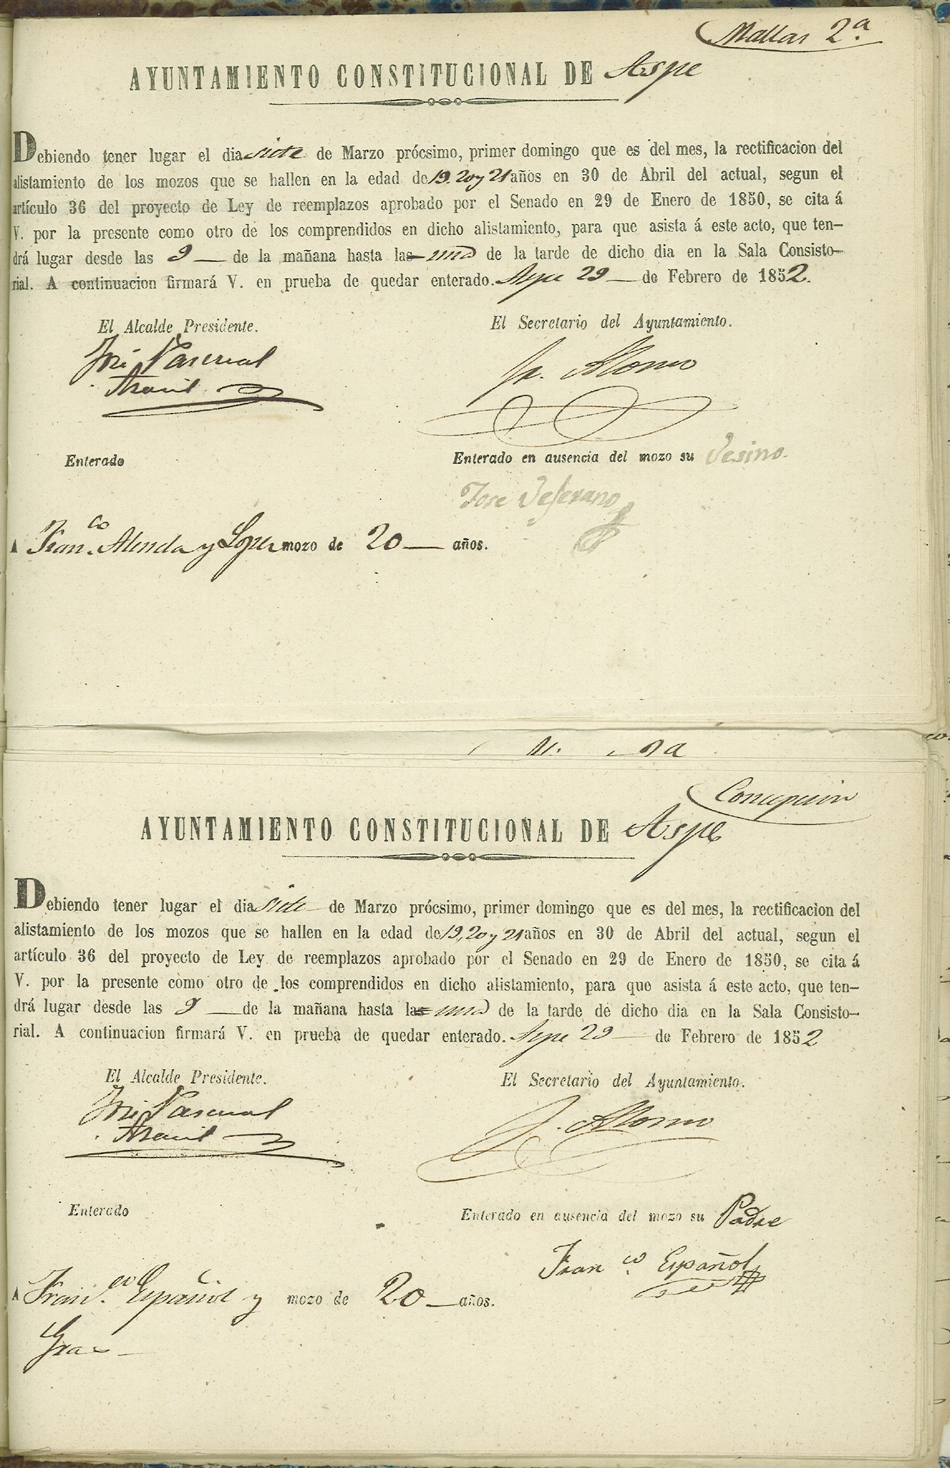 Mallas 2ª
AYUNTAMIENTO CONSTITUCIONAL DE Aspe
Debiendo tener lugar el dia siete de Marzo prócsimo, primer domingo que es del mes, la rectificacion del
alistamiento de los mozos que se hallen en la edad de 19. 20 y 21 años en 30 de Abril del actual, segun el
artículo 36 del proyecto de Ley de reemplazos aprobado por el Senado en 29 de Enero de 1850, se cita á
V. por la presente como otro de los comprendidos en dicho alistamiento, para que asista á este acto, que ten-
drá lugar desde las 9 de la mañana hasta las una de la tarde de dicho dia en la Sala Consisto-
rial. A continuacion firmará V. en prueba de quedar enterado. Aspe 29 de Febrero de 1852.
El Alcalde Presidente. El Secretario del Ayuntamiento.
José Pascual Alonso
Enterado Enterado en ausencia del mozo su Vesino.
Jose
A Fran.co Almda y Lopez mozo de 20 años.
Concepcion
AYUNTAMIENTO CONSTITUCIONAL DE Aspe
Debiendo tener lugar el dia siete de Marzo prócsimo, primer domingo que es del mes, la rectificacion del
alistamiento de los mozos que se hallen en la edad de 19, 20 y 21 años en 30 de Abril del actual, segun el
artículo 36 del proyecto de Ley de reemplazos aprobado por el Senado en 29 de Enero de 1850, se cita á
V. por la presente como otro de los comprendidos en dicho alistamiento, para que asista á este acto, que ten-
drá lugar desde las 9 de la mañana hasta las una de la tarde de dicho dia en la Sala Consisto-
rial. A continuacion firmará V. en prueba de quedar enterado. Aspe 29 de Febrero de 1852
El Alcalde Presidente. El Secretario del Ayuntamiento.
José Pascual Alonso
Enterado Enterado en ausencia del mozo su Padre
Fran co. Español
A Fran.co Español y mozo de 20 años.